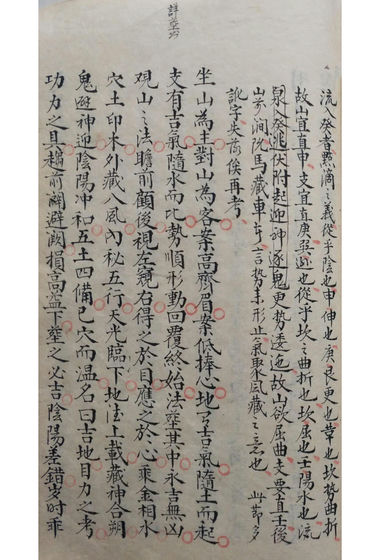 詳葬
流癸者點滴之義從乎陰也申伸也庚艮更也革也坎勢曲折
故山宜直申支宜直庚巽逆也從乎坎之曲折也坎屈也壬陽水也流
泉癸逃伏附起迎神逐鬼更勢委迤故山欲屈曲支要直壬後
岁澗阮馬藏車言勢來形止氣聚風藏之意也此節多
訛字失落俟再考
坐山為主對山為客案高齊眉案低捧心地有吉氣隨土而起
支有吉氣隨水而比勢順形動回覆終始法葬其中永吉無凶
观山之法瞻前顧後視左窺右得之於目應之於心乘金相水
穴土印木外藏八風內秘五行天光臨下地德上載藏神合朔
鬼避神迎陰陽冲和五土四備已穴而温名曰吉地目力之考
功力之具趨前闕避闕損高益下葬之必吉陰陽差錯岁时乖